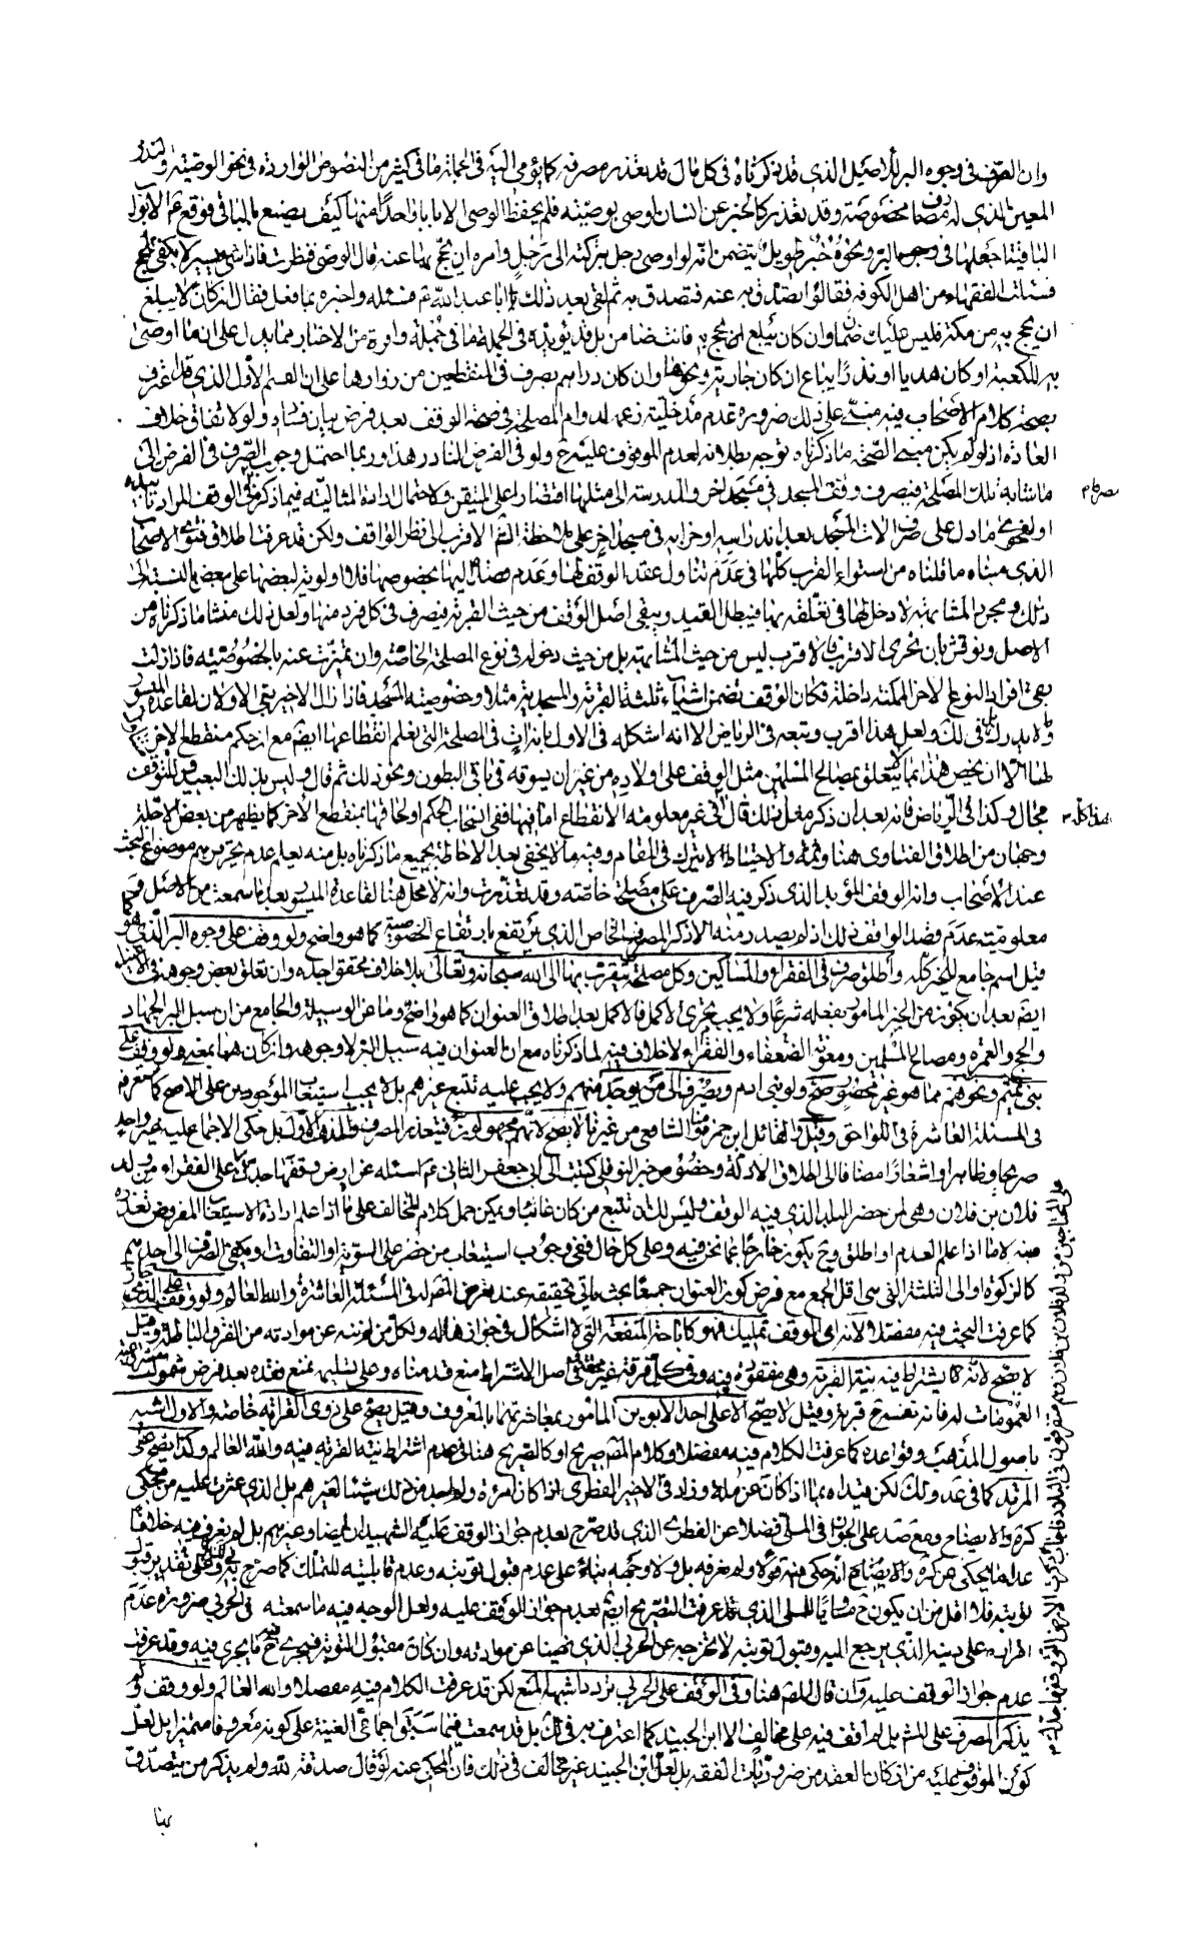 وان الصرف في وجوه البر للاصيل الذي قد ذكرناه في كل مال قد تعذر مصرفه كما يؤمي اليه في الجملة ما في كثير من النصوص الواردة في نحو الوصية والنذر
المعين الذي له مصارف مخصوصة وقد تعذر كالخبر عن انسان اوصى بوصية فلم يحفظ الوصي الا بابا واحدا منها كيف يصنع بالباقي فوقع ع الابواب
الباقية اجعلها في وجوه البر ونحوه خبر طويل يتضمن انه لو اوصى رجل بتركته الى رجل وامره ان يحج بها عنه قال الوصي فنظرت فاذا شيء يسير لا يكفي للحج
فسئلت الفقهاء من اهل الكوفة فقالوا تصدق به عنه فتصدق به ثم لقي بعد ذلك ابا عبد الله ع فسئله واخبره بما فعل فقال ان كان لا يبلغ
ان يحج به من مكة فليس عليك ضمان وان كان يبلغ ان يحج به فانت ضامن بل قد يؤيده في الجملة ما في جملة واردة من الاخبار مما يدل على ان ما اوصى
به للكعبة او كان هديا او نذرا يباع ان كان جارية ونحوها وان كان دراهم يصرف في المنقطعين من زوارها على ان القسم الاول الذي قد اعترف
بصحة كلام الاصحاب فيه مبني على ذلك ضرورة عدم مدخلية زعمه لدوام المصلحة في صحة الوقف بعد فرض بيان فساده ولو لا تفاق خلاف
العادة اذ لو لم يكن مبنى الصحة ما ذكرناه توجه بطلانه لعدم الموقوف عليه ح ولو في الفرض النادر هذا وربما احتمل وجوب الصرف في الفرض الى
ما شابه تلك المصلحة فيصرف وقف المسجد في مسجد اخر والمدرسة الى مثلها اقتصارا على المتيقن ولاحتمال ارادة المثالية فيما ذكره الوقف المراد تأبيده
او لفحوى ما دل على صرف الات المسجد بعد اندراسه او خرابه في مسجد اخر على ملاحظة الاقرب الى نظر الواقف ولكن قد عرفت اطلاق فتوى الاصحاب
الذي مبناه ما قلناه من استواء القرب كلها في عدم تناول عقد الوقف لها وعدم قصد اليها بخصوصها فلا اولوية لبعضها على بعض بالنسبة الى
ذلك ومجرد المشابهة لا دخل لها في تعلقه بها فيبطل القيد ويبقى اصل الوقف من حيث القربة فيصرف في كل فرد منها ولعل ذلك منشا ما ذكرناه من
الاصل ونوقش بان تحري الاقرب فالاقرب ليس من حيث المشابهة بل من حيث دخوله في نوع المصلحة الخاصة وان تميزت عنه بالخصوصية فاذا زالت
بقي افراد النوع الاخر الممكنة داخلة فكان الوقف تضمن اشياء ثلثة القربة والمسجدية مثلا وخصوصية المسجد فاذا زال الاخير بقي الاولان لقاعدة الميسور
وما لا يدرك كله في ذلك ولعل هذا اقرب وتبعه في الرياض الا انه اشكله في الاول بانه ات في المصلحة التي يعلم انقطاعها ايضم مع ان حكم منقطع الاخر شامل
لها الا ان يخص هذا بما لا يتعلق بمصالح المسلمين مثل الوقف على اولاده من غير ان يسوقه في باقي البطون ونحو ذلك ثم قال وليس بذلك البعيد وللتوقف
مجال وكذا في الرياض فانه بعد ان ذكر مثل ذلك قال في غير معلومة الانقطاع اما فيها ففي انسحاب الحكم او الحاقها بمنقطع الاخر كما يظهر من بعض الاجلة
وجهان من اطلاق الفتاوى هنا وثمة والاحتياط لا يترك في المقام وفيه ما لا يخفى بعد الاحاطة بجميع ما ذكرناه بل منه يعلم عدم تحريرهم موضوع البحث
عند الاصحاب وانه الوقف المؤبد الذي ذكر فيه الصرف على مصلحة خاصة وقد تعذرت وانه لا محل هنا لقاعدة الميسور بعد ما سمعت من الاصل
معلومية عدم قصد الواقف ذلك اذ لم يصدر منه الا ذكر المصرف الخاص الذي يرتفع بارتفاع الخصوصية كما هو واضح ولو وقف على وجوه البر الذي هو كما
قيل اسم جامع للخير كله واطلق صرف في الفقراء والمساكين وكل مصلحة يتقرب بها الى الله سبحانه وتعالى بلا خلاف محقق اجده وان تعلق بعض وجوهه في الاغنياء
ايضم بعد ان يكون من الخير المامور بفعله شرعا ولا يجب تحري الاكمل فالاكمل بعد اطلاق العنوان كما هو واضح وما عن الوسيلة والجامع من ان سبيل البر الجهاد
والحج والعمرة ومصالح المسلمين ومعونة الضعفاء والفقراء لا خلاف فيه لما ذكرناه مع ان العنوان فيه سبيل البر لا وجوهه وان كان هما بمعنى ولو وقف على
بني تميم ونحوهم مما هو غير محصور صح ولو بني ادم ويصرف الى من يوجد منهم ولا يجب عليه تتبع غيرهم بل لا يجب استيعاب الموجودين على الاصح كما ستعرفه
في المسئلة العاشرة في اللواحق وقيل والقائل ابن حمزة منا والشافعي من غيرنا لا يصح لانهم مجهولون فيتعذر المصرف والمذهب الاول بل حكى الاجماع عليه غير واحد
صريحا وظاهرا واشعارا مضافا الى اطلاق الادلة وخصوص خبر النوفلي كتبت الى ابي جعفر الثاني ع اسئله عن ارض وقفها جدي على الفقراء من ولد
فلان بن فلان وهي لمن حضر البلد الذي فيه الوقف وليس لك ان تتبع من كان غائبا ويمكن حمل كلام المخالف على ما اذا علم ارادة الاستيعاب المفروض تعذره
منه لا ما اذا علم العدم او اطلق وح يكون خارجا عما نحن فيه وعلى كل حال ففي وجوب استيعاب من حضر على السوية او التفاوت او يكفي الصرف الى احدهم
كالزكوة او الى الثلثة التي هي اقل الجمع مع فرض كون العنوان جميعا بحث ياتي تحقيقه عند تعرض المصم له في المسئلة العاشرة والله العالم ولو وقف على الذمي جاز
كما عرفت البحث فيه مفصلا لانه اي الوقف تمليك فهو كاباحة المنفعة التي لا اشكال في جوازها له ولكل من لم ننه عن موادته من الفرق الباطلة وقيل
لا يصح لانه كما يشترط فيه نية القربة وهي مفقودة فيه وفي كل فرقة غير محقة وفي اصل الاشتراط منع قدمناه وعلى تسليمه يمنع فقده بعد فرض شمول
العمومات له فانه نفسه ح قربة وقيل لا يصح الا على احد الابوين المامور بمعاشرتهما بالمعروف وقيل يصح على ذوي القرابة خاصة والاول اشبه
باصول المذهب وقواعده كما عرفت الكلام فيه مفصلا وكلام المصم صريح او كالصريح هنا في عدم اشتراط نية القربة فيه والله العالم وكذا يصح على
المرتد كما في عد ولك لكن قيداه بما اذا كان عن ملة وزاد في الاخير الفطري اذا كان امرءة ولم اجد من ذلك شيئا لغيرهم بل الذي عثرت عليه من محكي
كره والايضاح ومع صد على الجواز في الملي فضلا عن الفطري الذي قد صرح بعدم جواز الوقف عليه الشهيدان ايضا وغيرهم بل لم نعرف فيه خلافا
عدا ما يحكى عن كره والايضاح انه حكى فيه قولا ولم نعرفه بل ولا وجهه بناء على عدم قبول توبته وعدم قابليته للملك كما صرح به وعلى تقدير قبول
توبته فلا اقل من ان يكون ح مساويا للملي الذي قد عرفت التصريح ايضم بعدم جواز الوقف عليه ولعل الوجه فيه ما سمعته في الحربي ضرورة عدم
اقراره على دينه الذي يرجع اليه وقبول توبته لا تخرجه عن الحربي الذي نهينا عن موادته وان كان مقبول التوبة فيجري فيه ح ما يجري فيه وقد عرفت
عدم جواز الوقف عليه وان قال المصم هنا وفي الوقف على الحربي تردد اشبهه المنع لكن قد عرفت الكلام فيه مفصلا والله العالم ولو وقف ولم
يذكر المصرف بطل ثم بل لم اقف فيه على مخالف الا ابن الجنيد كما اعترف به في لك بل قد سمعت فيما سبق اجماعي الغنية على كونه معروفا متميزا بل لعل
كون الموقوف عليه من اركان العقد من ضروريات الفقه بل لعل ابن الجنيد غير مخالف في ذلك فان المحكي عنه لو قال صدقة لله ولم يذكر من يتصدق
بها
على المحتاجين من ولد فلان بن فلان وهم متفرقون في البلاد فاجاب ذكرت الارض التي وقفها جدك